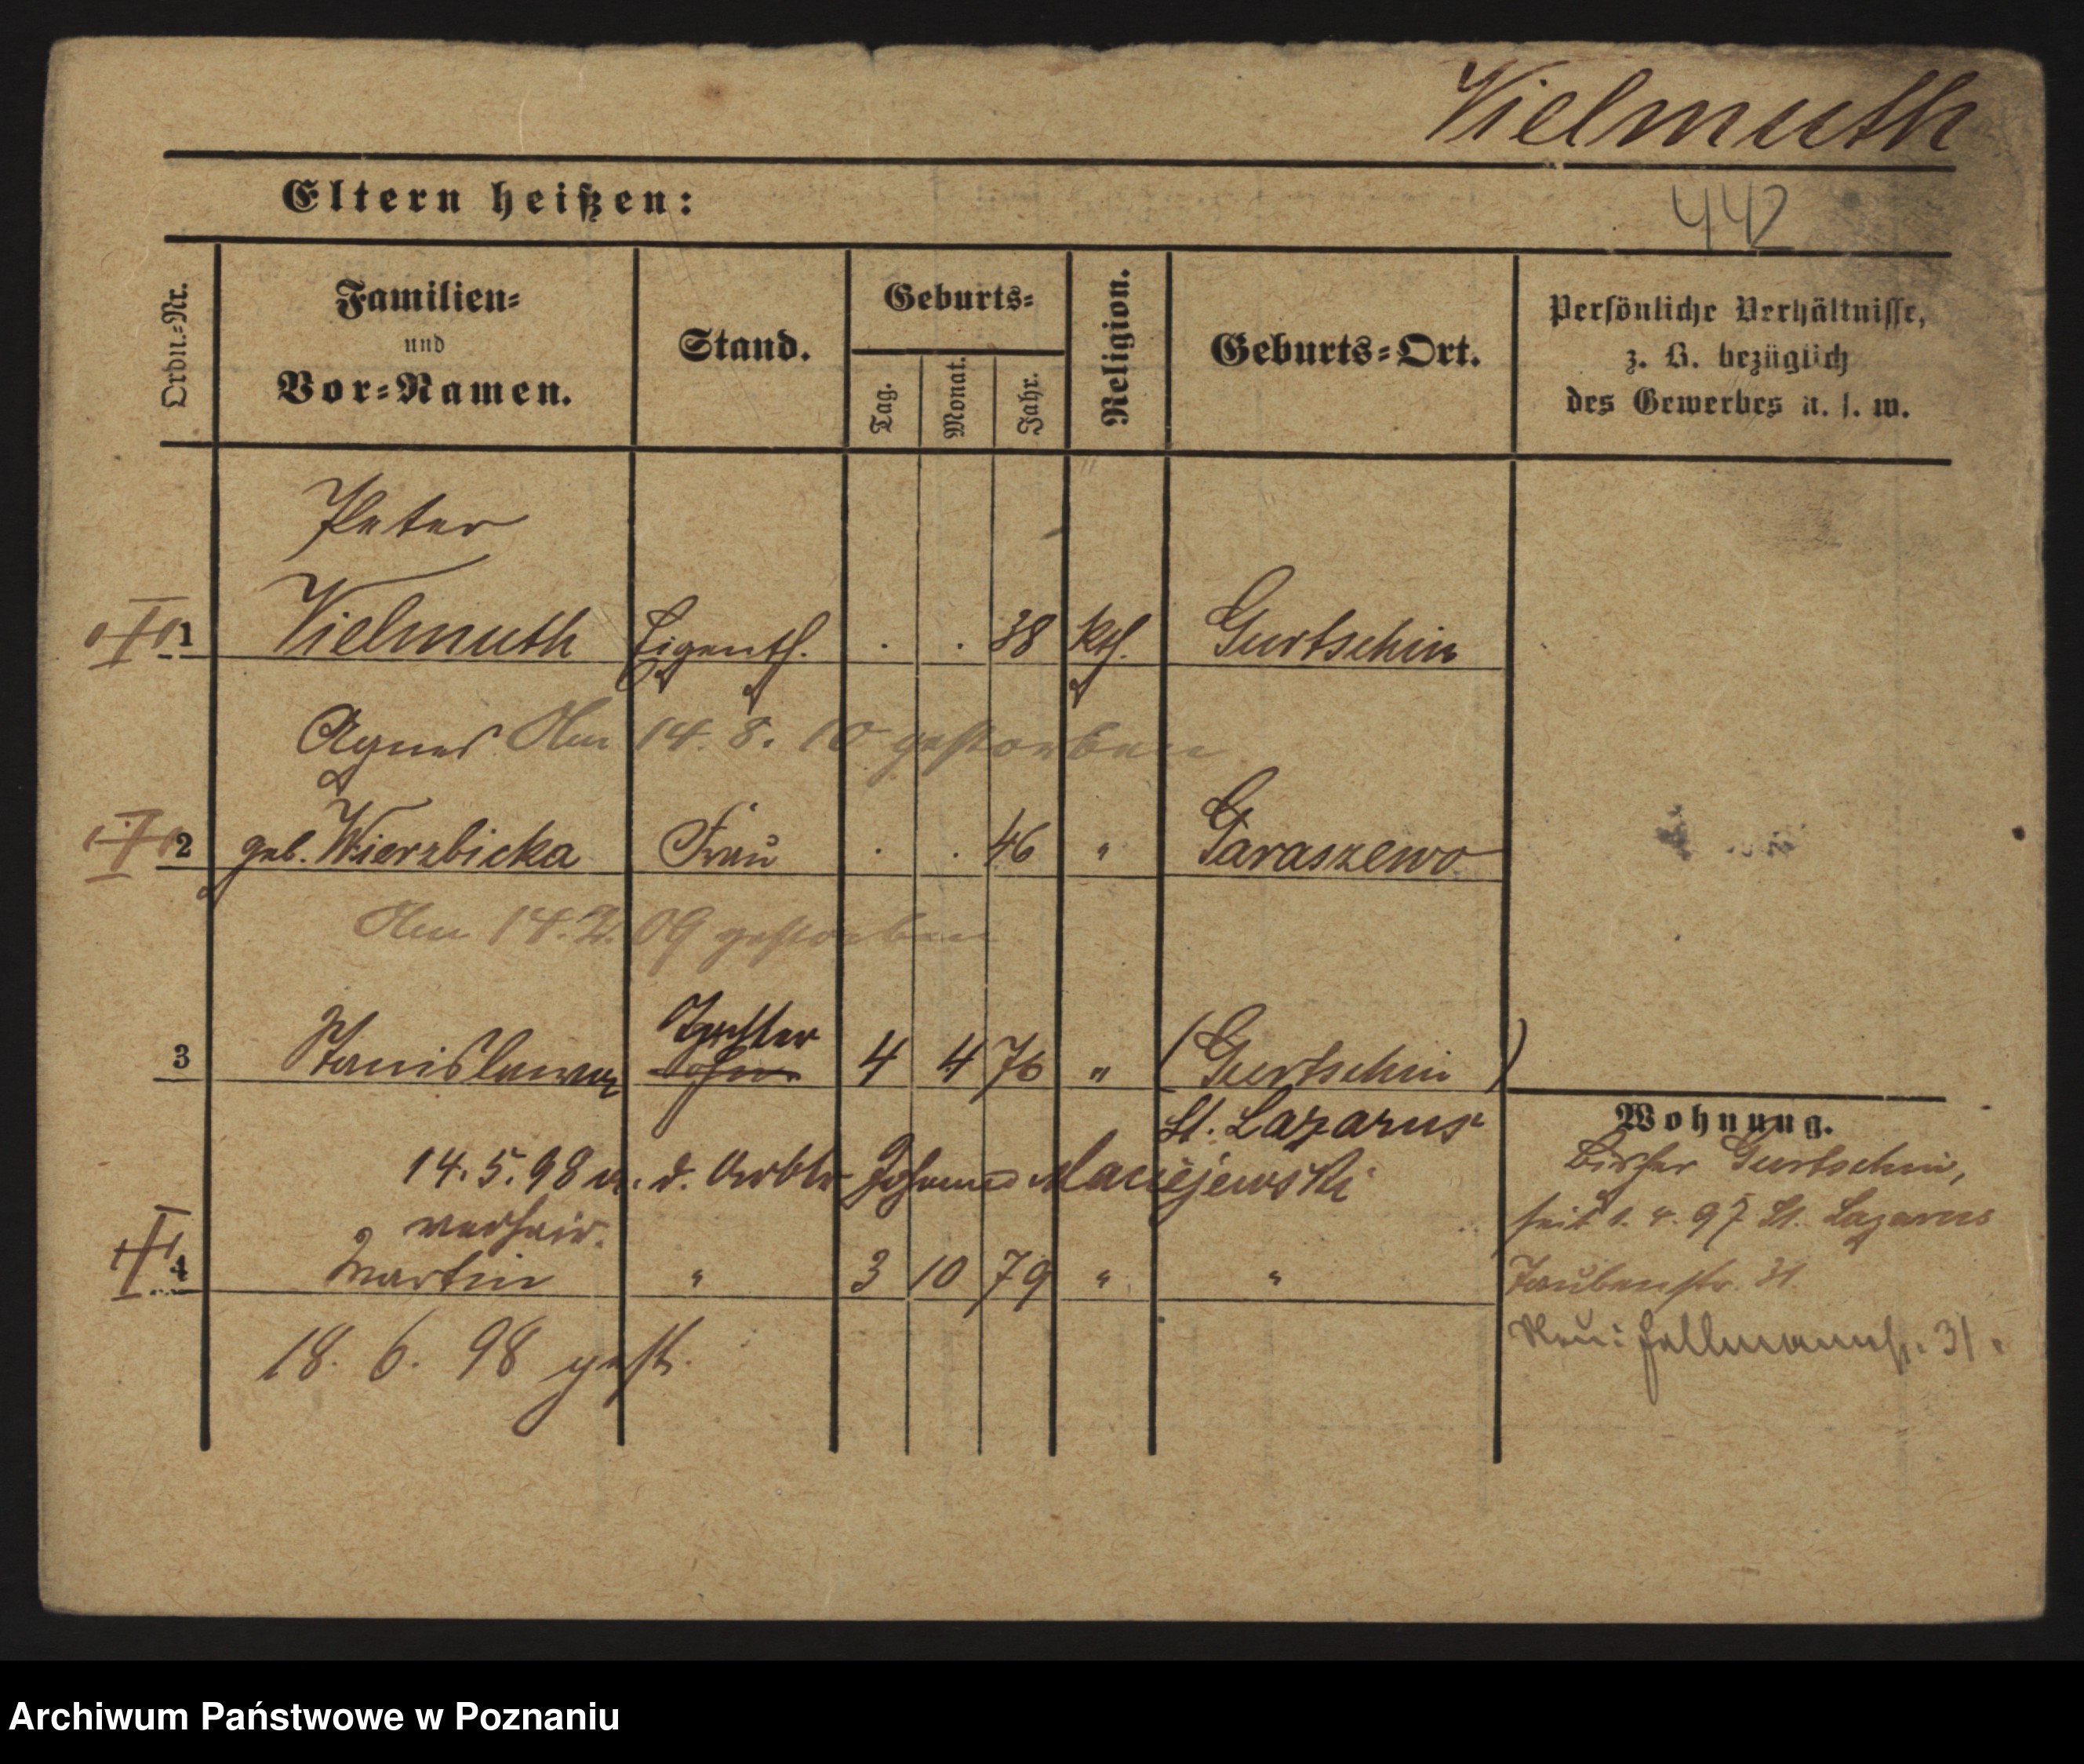 Vielmuth
Eltern heißen:
442
Ordn.=Nr.
Familien=
und
Vor=Namen.
Stand.
Geburts=
Tag.
Monat.
Jahr.
Religion.
Geburts=Ort.
Persönliche Verhältnisse,
z. B. bezüglich
des Gewerbes u. s. w.
Peter
1 Vielmuth Eigenth. . . 38 kth. Gurtschin
Agnes Am 14. 8. 10 gestorben
2 geb. Wierzbicka Frau . . 46 " Garaszewo
Am 14. 2. 09 gestorben
Tochter
3 Stanislawa Sohn 4 4 76 " (Gurtschin)
St. Lazarus
Wohnung.
14. 5. 98 m. d. Arbtr Johann Maciejewski
verheir.
4 Martin " 3 10 79 " "
18. 6. 98 gest.
Bisher Gurtschin,
seit 1. 4. 97 St. Lazarus
Taubenstr. 31
Neu: Hellmannstr. 31.
Archiwum Państwowe w Poznaniu